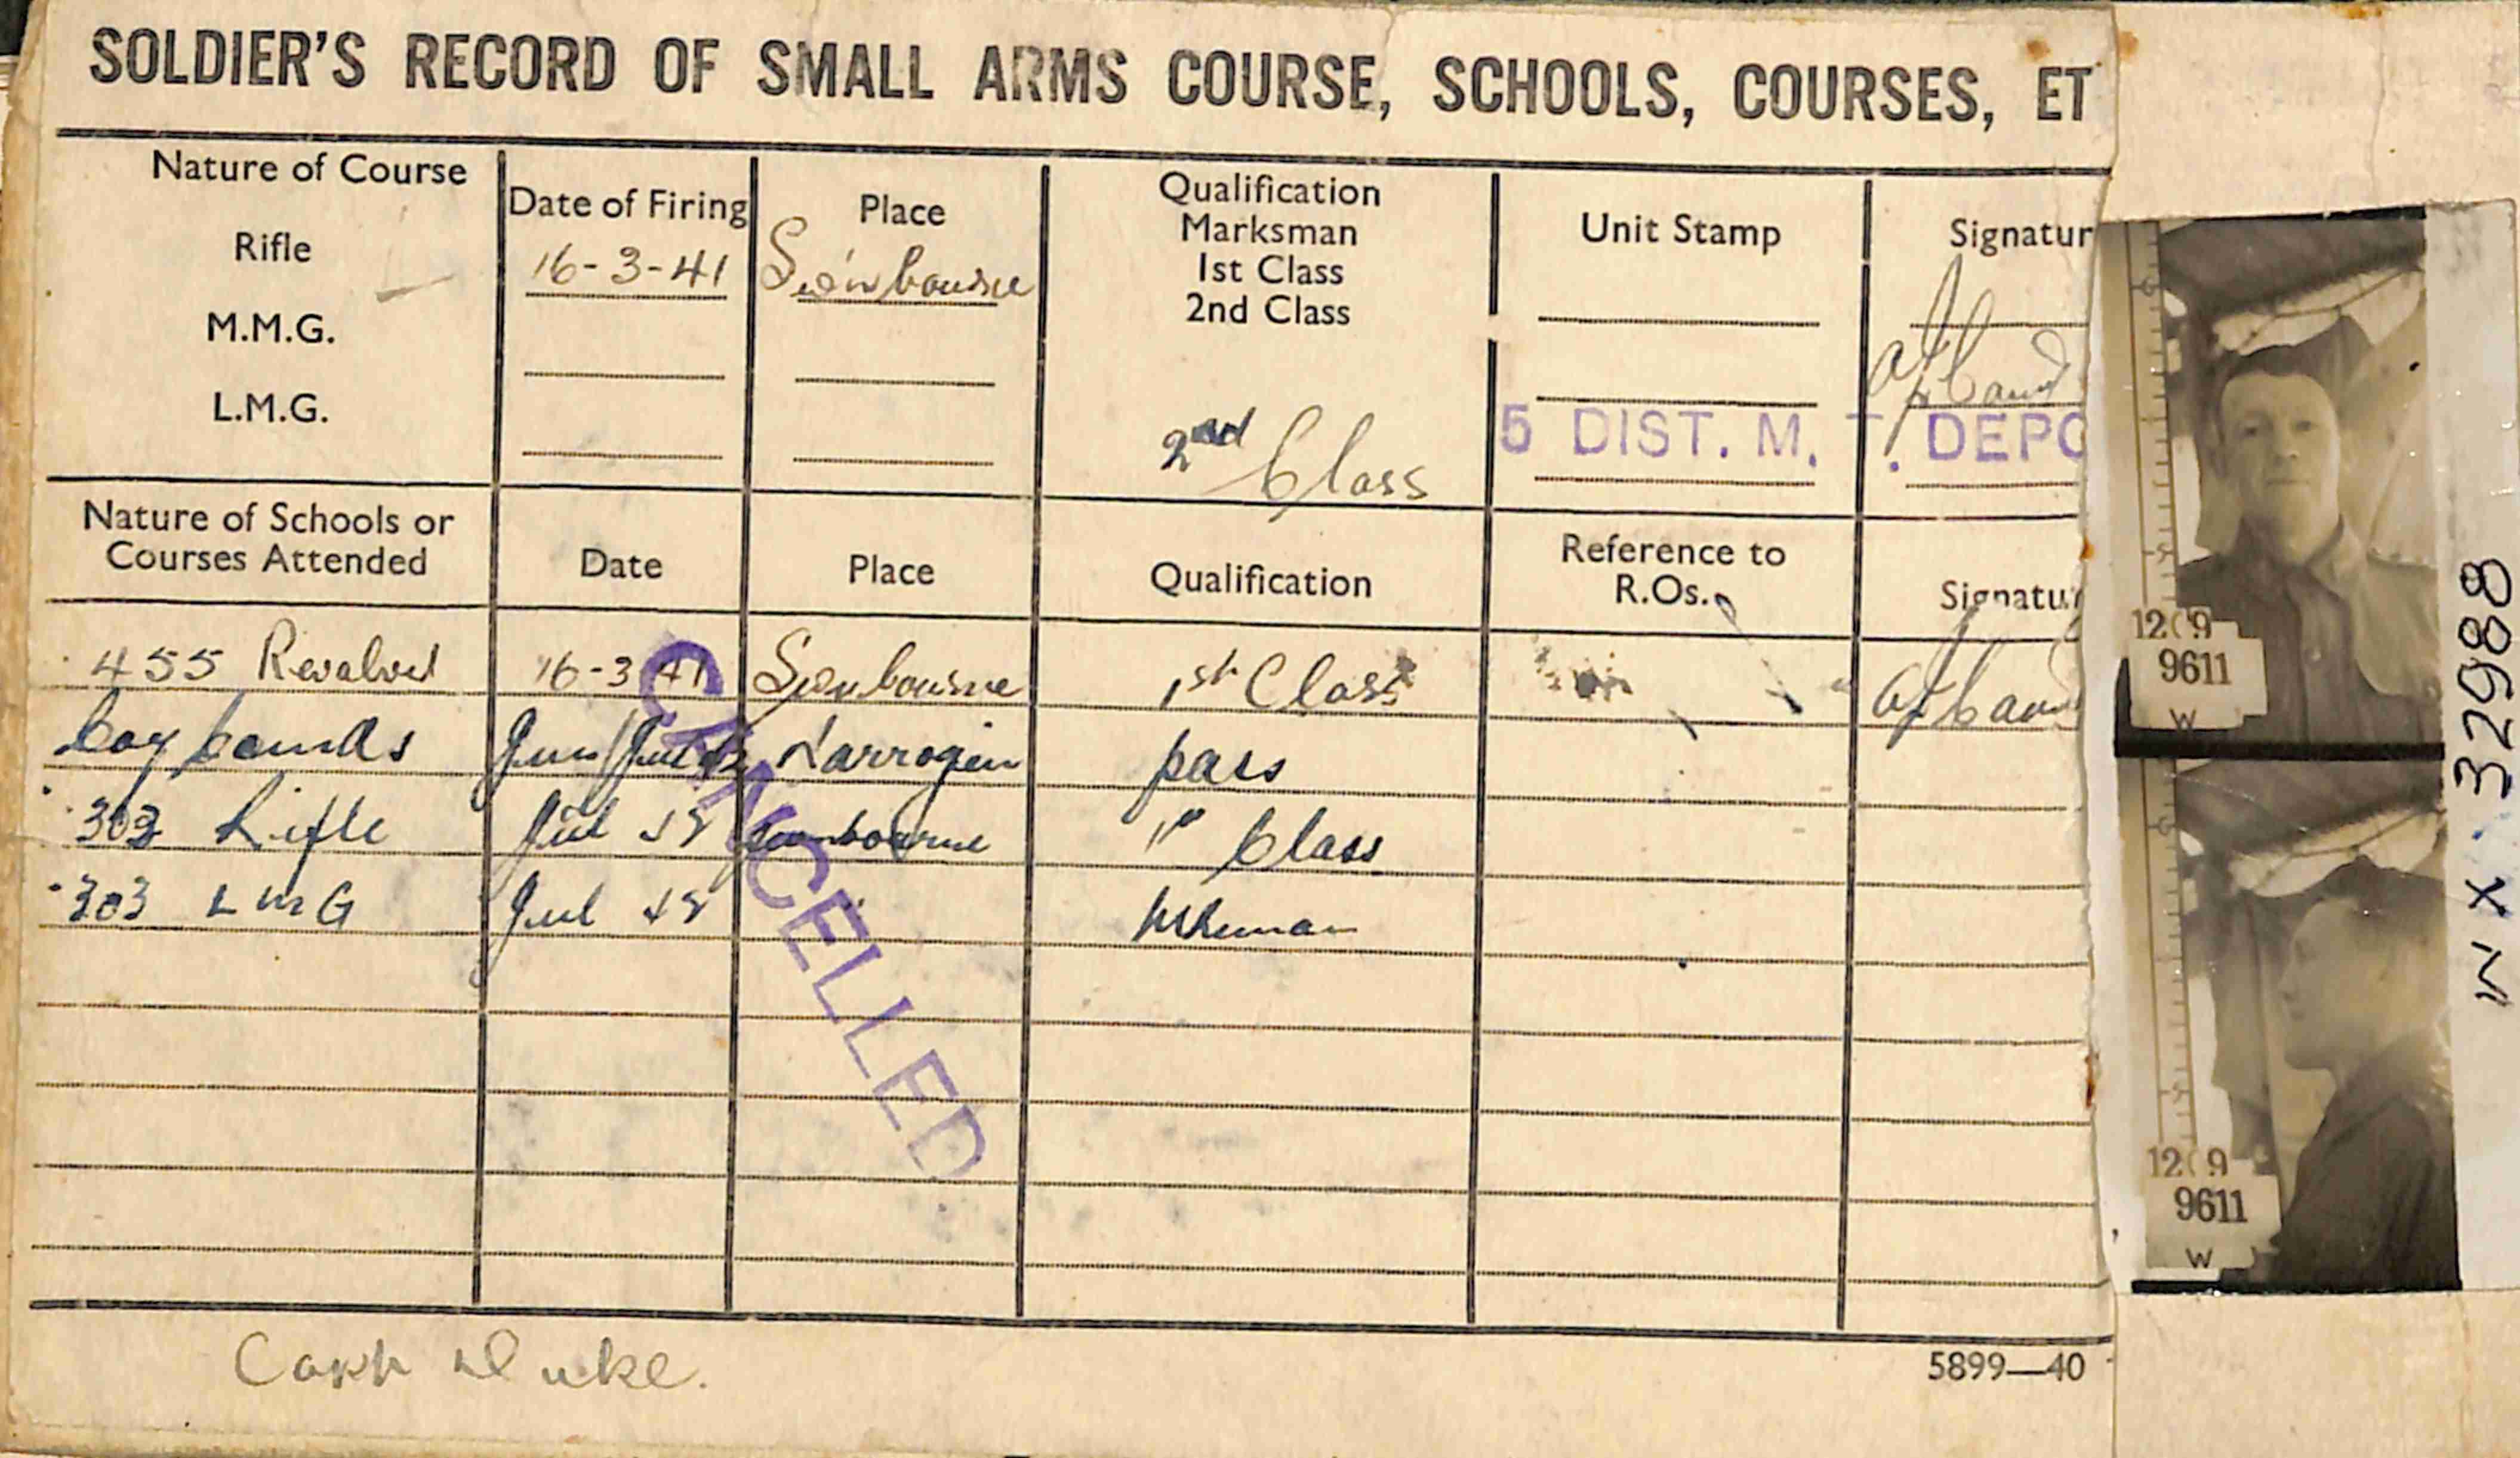 SOLDIER'S RECORD OF SMALL ARMS COURSE, SCHOOLS, COURSES, ET
Nature of Course
Rifle
M.M.G.
L.M.G.
Date of Firing
16-3-41
Place
Swanbourne
Qualification
Marksman
1st Class
2nd Class
2nd Class
Unit Stamp
5 DIST. M. T. DEPO
Signatur
Nature of Schools or
Courses Attended
Date
Place
Qualification
Reference to
R.Os.
Signatur
455 Revolver 16-3-41 Swanbourne 1st Class
Jun/Jul Narrogin pass
303 Rifle Jul 43 Swanbourne 1st Class
303 LMG Jul 43 "
CANCELLED
Duke.
5899—40
1209
9611
W
1209
9611
W
WX 32988